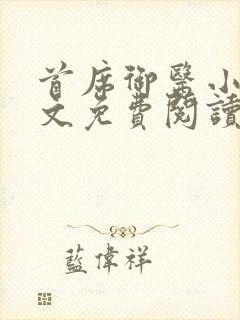 首席御醫小
文免費閱讀
藍偉祥